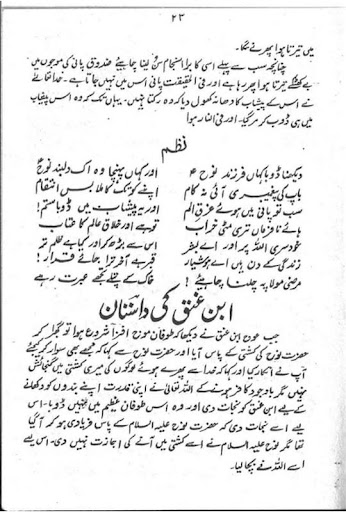 ۲۳
میں تیرتا ہوا پھرنے لگا۔
چنانچہ سب سے پہلے اسی کا برا انجام سن لینا چاہیئے صندوق پانی کی موجوں میں
بے کھٹکے تیرتا ہوا پھر رہا ہے اور فی الحقیقت پانی اس میں نہیں جاتا ہے۔ خدا تعالےٰ
نے اس کے پیشاب کا دھانہ کھول دیا کہ وہ رکتا نہیں۔ یہاں تک کہ وہ اس پیشاب
میں ہی ڈوب کر مرگیا۔ اور فی النار ہوا
نظم
دیکھنا ڈوبا کہاں فرزند نوح ؑ اور کہاں پہنچا وہ اک دلبند نوحؑ
باپ کی پیغمبری آئی نہ کام اپنے کوتک کا ملا بس انتقام
سب تو پانی میں ہوئے غرق الم اور یہ پیشاب میں ڈوبا ستم!
ہائے نافرماں تری مٹی خراب تو ہے اور خلاق عالم کا عتاب
خودسری اللہ پر اور اے بشر اس سے بڑھ کر اور کیا ہے ظلم تر
زندگی کے دن ہیں اے ہوشیار قبر ہے آخر ترا جائے قرار!
مرضی مولا پہ چلنا چاہیئے! خاک کے پتلے تجھے عبرت رہے
ابن عنق کی داستان
جب عوج ابن عنق نے دیکھا کہ طوفان موج افزا شروع ہوا تو گھبرا کر
حضرت نوحؑ کی کشتی کے پاس آیا اور حضرت نوحؑ سے کہا کہ مجھے بھی سوار کر لیجئے
آپ نے انکار کیا اور کہا کہ خدا سے پھرے ہوئے لوگوں کی میری کشتی میں گنجائش
نہیں مگر باوجود کافر ہونے کے اللہ تعالیٰ نے اپنی قدرت اپنے بندوں کو دکھلانے
کے لیے ابن عنق کو نجات دی اور وہ اس طوفان عظیم میں نہیں ڈوبا۔ اس لیے
اسے نجات دی کہ حضرت نوح علیہ السلام کے پاس فریادی ہو کر آگیا
تھا مگر نوح علیہ السلام نے اسے کشتی میں آنے کی اجازت نہیں دی۔ اس لیے
اسے اللہ نے بچا لیا۔